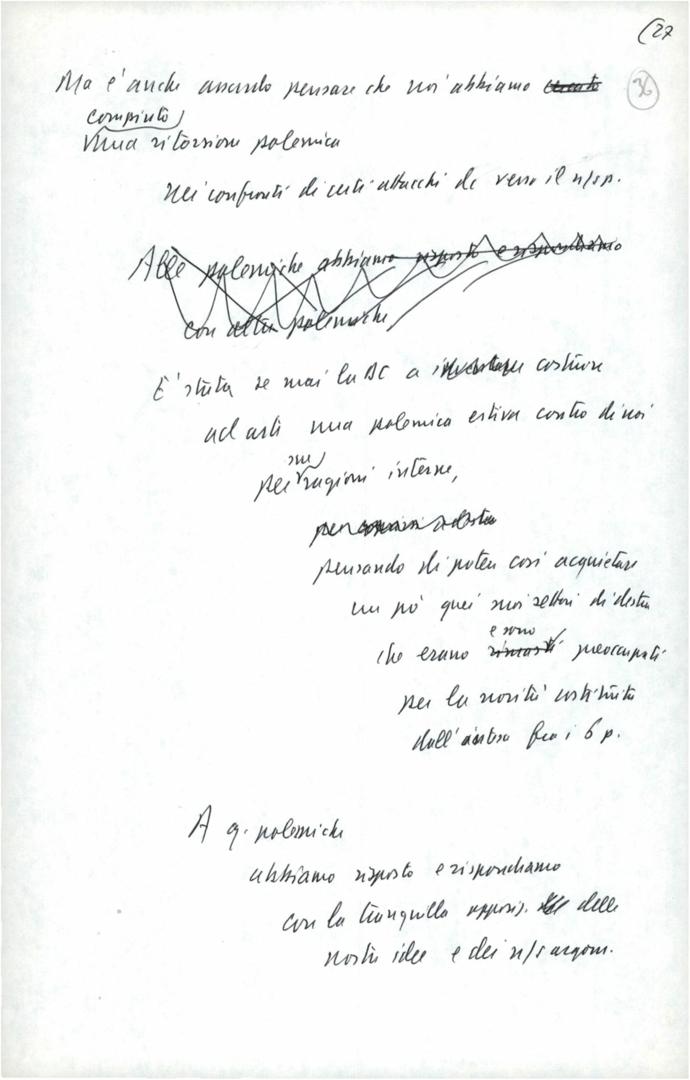 (27
36
Ma è anche assurdo pensare che noi abbiamo
compiuto
una ritorsione polemica
nei confronti di certi attacchi dc verso il n/sp.
Alle polemiche abbiamo risposto e rispondiamo
con altre polemiche
E' stata se mai la DC a costruire
ad arte una polemica estiva contro di noi
sue
per ragioni interne,
pensando di poter così acquietare
un pò quei suoi settori di destra
e sono
che erano rimasti preoccupati
per la novità costituita
dall'intesa fra i 6 p.
A q. polemiche
abbiamo risposto e rispondiamo
con la tranquilla opposiz. delle
nostre idee e dei n/s argom.